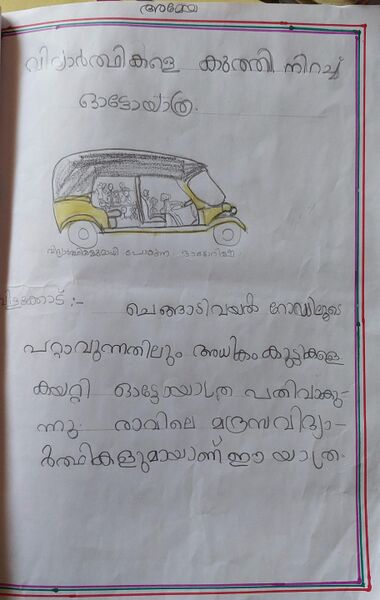 വിദ്യാർത്ഥികളെ കുത്തി നിറച്ച്
ഓട്ടോയാത്ര.
വിദ്യാർത്ഥികളുമായി പോകുന്ന ഓട്ടോറിക്ഷ
:- ചെങ്ങാടിവയൽ റോഡിലൂടെ
പറ്റാവുന്നതിലും അധികം കുട്ടികളെ
കയറ്റി ഓട്ടോയാത്ര പതിവാകു-
ന്നു. രാവിലെ മദ്രസ വിദ്യാ-
ർത്ഥികളുമായാണ് ഈ യാത്ര.